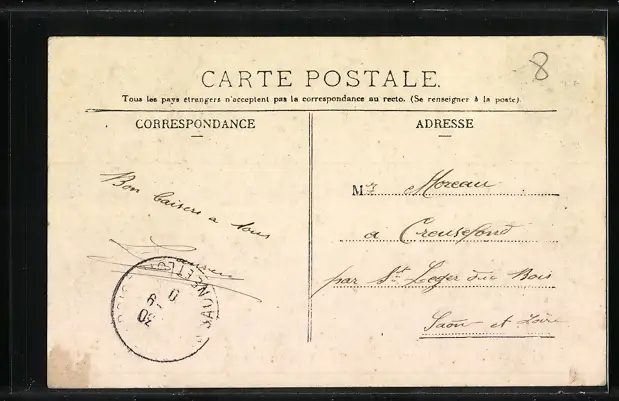 8
CARTE POSTALE.
Tous les pays étrangers n'acceptent pas la correspondance au recto. (Se renseigner à la poste).
CORRESPONDANCE
ADRESSE
Bon baisers a tous
Mr Moreau
a Creusefond
par St Leger du Bois
Saôn et Loire
30 - 9